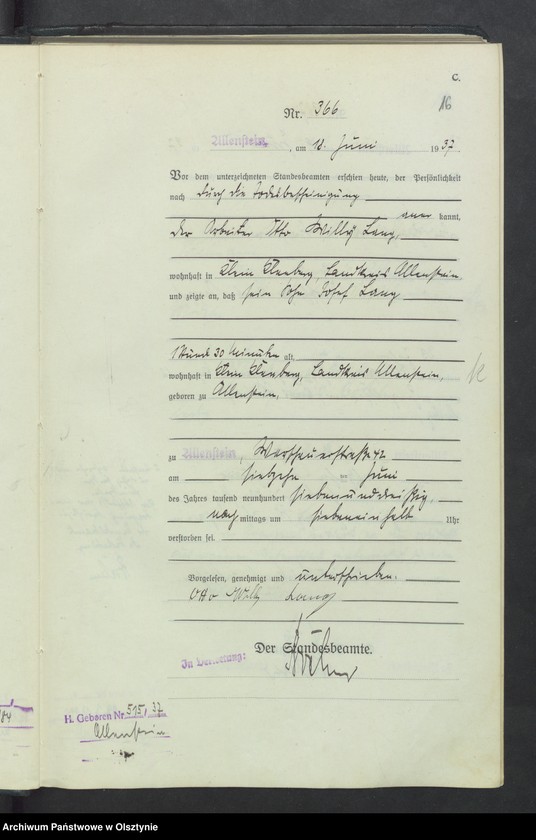 C.
16
Nr. 366
Allenstein, am 18. Juni 1937
Vor dem unterzeichneten Standesbeamten erschien heute, der Persönlichkeit
nach durch die Todesbescheinigung
aner kannt,
der Arbeiter Otto Willy Lang,
wohnhaft in Klein Kleeberg, Landkreis Allenstein
und zeigte an, daß sein Sohn Josef Lang
1 Stunde 30 Minuten alt,
wohnhaft in Klein Kleeberg, Landkreis Allenstein,
geboren zu Allenstein,
zu Allenstein, Warschauerstraße 42
am siebzehn ten Juni
des Jahres tausend neunhundert siebenunddreißig,
nach mittags um siebeneinhalb Uhr
verstorben sei.
Vorgelesen, genehmigt und unterschrieben.
Otto Willy Lang
Der Standesbeamte.
In Vertretung:
H. Geboren Nr. 515/37
Allenstein
Archiwum Państwowe w Olsztynie